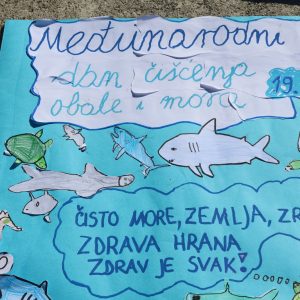 Međunarodni
dan čišćenja
obale i mora
19.
ČISTO MORE, ZEMLJA, ZR
ZDRAVA HRANA
ZDRAV JE SVAK!